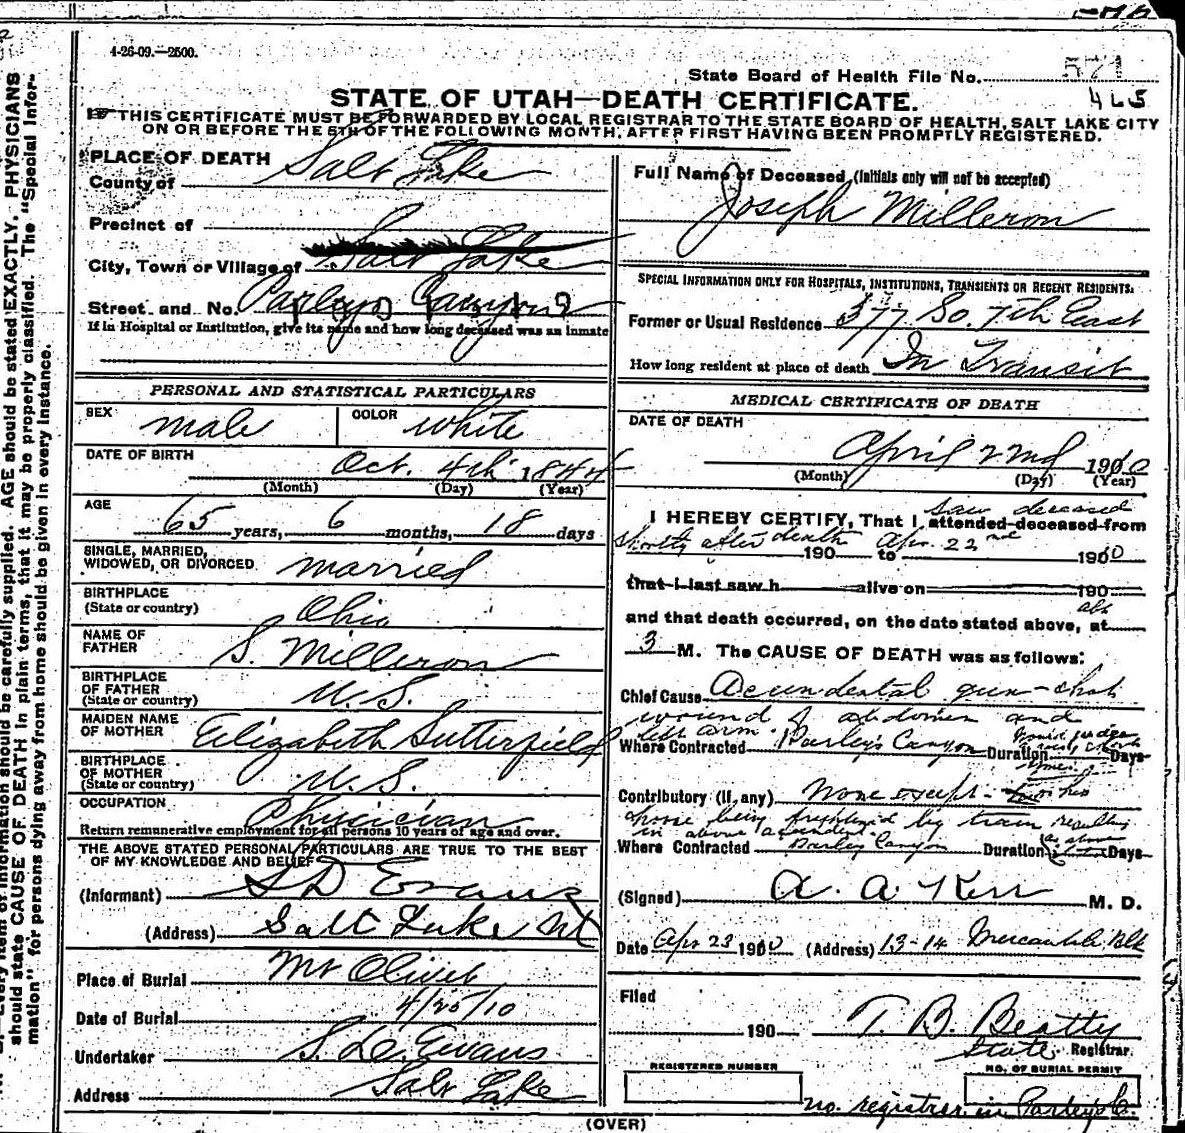 4-26-09.—2500.
State Board of Health File No. 571
465
STATE OF UTAH—DEATH CERTIFICATE.
THIS CERTIFICATE MUST BE FORWARDED BY LOCAL REGISTRAR TO THE STATE BOARD OF HEALTH, SALT LAKE CITY
ON OR BEFORE THE 5TH OF THE FOLLOWING MONTH, AFTER FIRST HAVING BEEN PROMPTLY REGISTERED.
PLACE OF DEATH
County of Salt Lake
Precinct of
City, Town or Village of Salt Lake
Street and No. Parleys Canyon
If in Hospital or Institution, give its name and how long deceased was an inmate
PERSONAL AND STATISTICAL PARTICULARS
SEX male COLOR white
DATE OF BIRTH Oct. 4th 1844
(Month) (Day) (Year)
AGE 65 years, 6 months, 18 days
SINGLE, MARRIED,
WIDOWED, OR DIVORCED married
BIRTHPLACE
(State or country) Ohio
NAME OF
FATHER S. Milleron
BIRTHPLACE
OF FATHER
(State or country) U.S.
MAIDEN NAME
OF MOTHER Elizabeth Sutterfield
BIRTHPLACE
OF MOTHER
(State or country) U.S.
OCCUPATION Physician
Return remunerative employment for all persons 10 years of age and over.
THE ABOVE STATED PERSONAL PARTICULARS ARE TRUE TO THE BEST
OF MY KNOWLEDGE AND BELIEF
(Informant) S D Evans
(Address) Salt Lake Ut
Place of Burial Mt Olivet
Date of Burial 4/25/10
Undertaker S. D. Evans
Address Salt Lake
Full Name of Deceased (Initials only will not be accepted)
Joseph Milleron
SPECIAL INFORMATION ONLY FOR HOSPITALS, INSTITUTIONS, TRANSIENTS OR RECENT RESIDENTS.
Former or Usual Residence 377 So. 7th East
How long resident at place of death In Transit
MEDICAL CERTIFICATE OF DEATH
DATE OF DEATH
April 22nd 1910
(Month) (Day) (Year)
saw deceased
I HEREBY CERTIFY, That I attended deceased from
shortly after death 190 to Apr. 22nd 1910
that I last saw h alive on 190
and that death occurred, on the date stated above, at abt
3 M. The CAUSE OF DEATH was as follows:
Chief Cause Accidental gun-shot
wound of abdomen and
left arm.
Where Contracted Parley's Canyon Duration Days
Contributory (if any) None except his
horse being frightened by train resulting
in above accident.
Where Contracted Parley Canyon Duration as above Days
(Signed) A. A. Kerr M. D.
Date Apr 23 1910 (Address) 13-14 Mercantile Blk
Filed
190 T. B. Beatty
State Registrar.
REGISTERED NUMBER
NO. OF BURIAL PERMIT
no registrar in Parley's C.
(OVER)
should state CAUSE OF DEATH in plain terms, that it may be properly classified. The "Special Infor-
mation" for persons dying away from home should be given in every instance.
Every item of information should be carefully supplied. AGE should be stated EXACTLY. PHYSICIANS